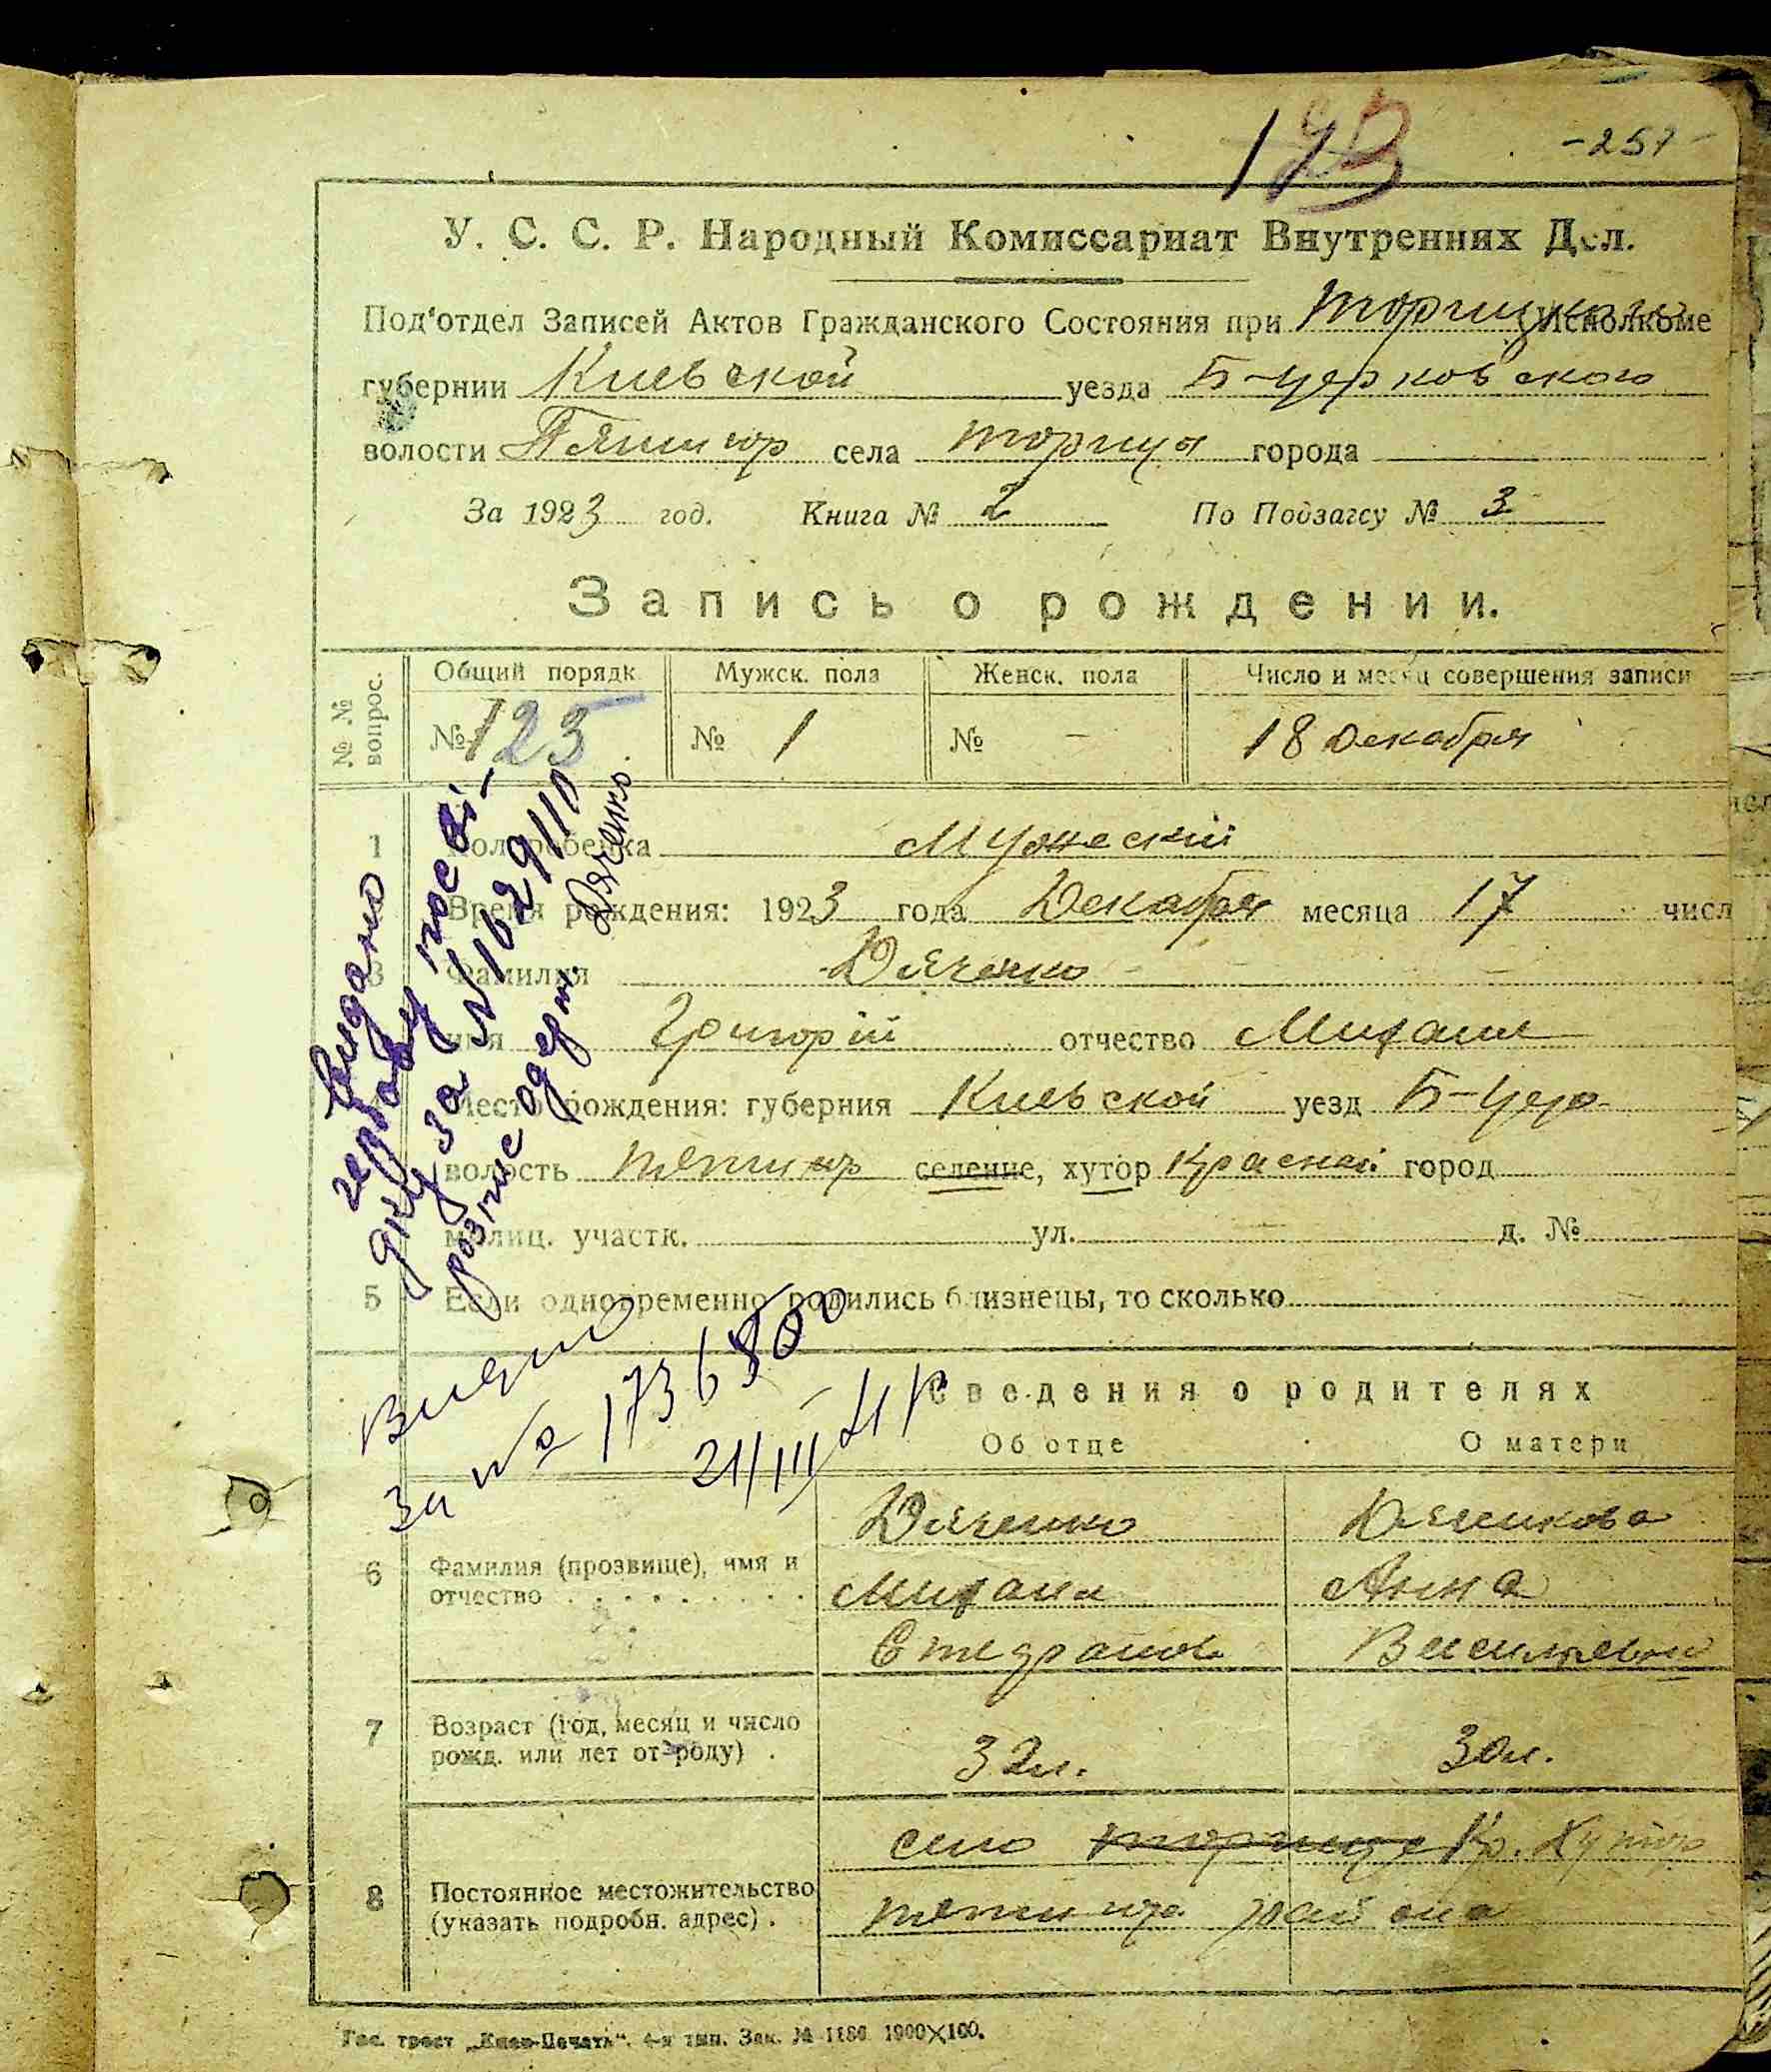 -257-
У. С. С. Р. Народный Комиссариат Внутренних Дел.
Под'отдел Записей Актов Гражданского Состояния при Торицком Исполкоме
губернии Киевской уезда Б-церковского
волости Пятигор села Торица города
За 1923 год. Книга № 2 По Подзагсу № 3
Запись о рождении.
№ № вопрос.
Общий порядк. Мужск. пола Женск. пола Число и месяц совершения записи
№ 123 № 1 № - 18 Декабря
1 Пол ребенка Мужеский
Время рождения: 1923 года Декабря месяца 17 числ
3 Фамилия Дяченко
имя Григорій отчество Михаил
Место рождения: губерния Киевской уезд Б-Цер
волость Пятигор селение, хутор Красной город
милиц. участк. ул. д. №
5 Если одновременно родились близнецы, то сколько
Видано
гербову посві-
дку за № 1629110
розпис одерж. Дяченко
Видано
за № 1736800
21/III
Сведения о родителях
Об отце О матери
6 Фамилия (прозвище), имя и
отчество
Дяченко Дяченкова
Михаил Анна
Стефанов Васильевна
7 Возраст (год, месяц и число
рожд. или лет от роду) .
32л. 30л.
8 Постоянное местожительство
(указать подробн. адрес) .
село Торица Кр. Хутор
Пятигор района
Гос. трест „Киев-Печать“. 4-я тип. Зак. № 1186 1000×100.